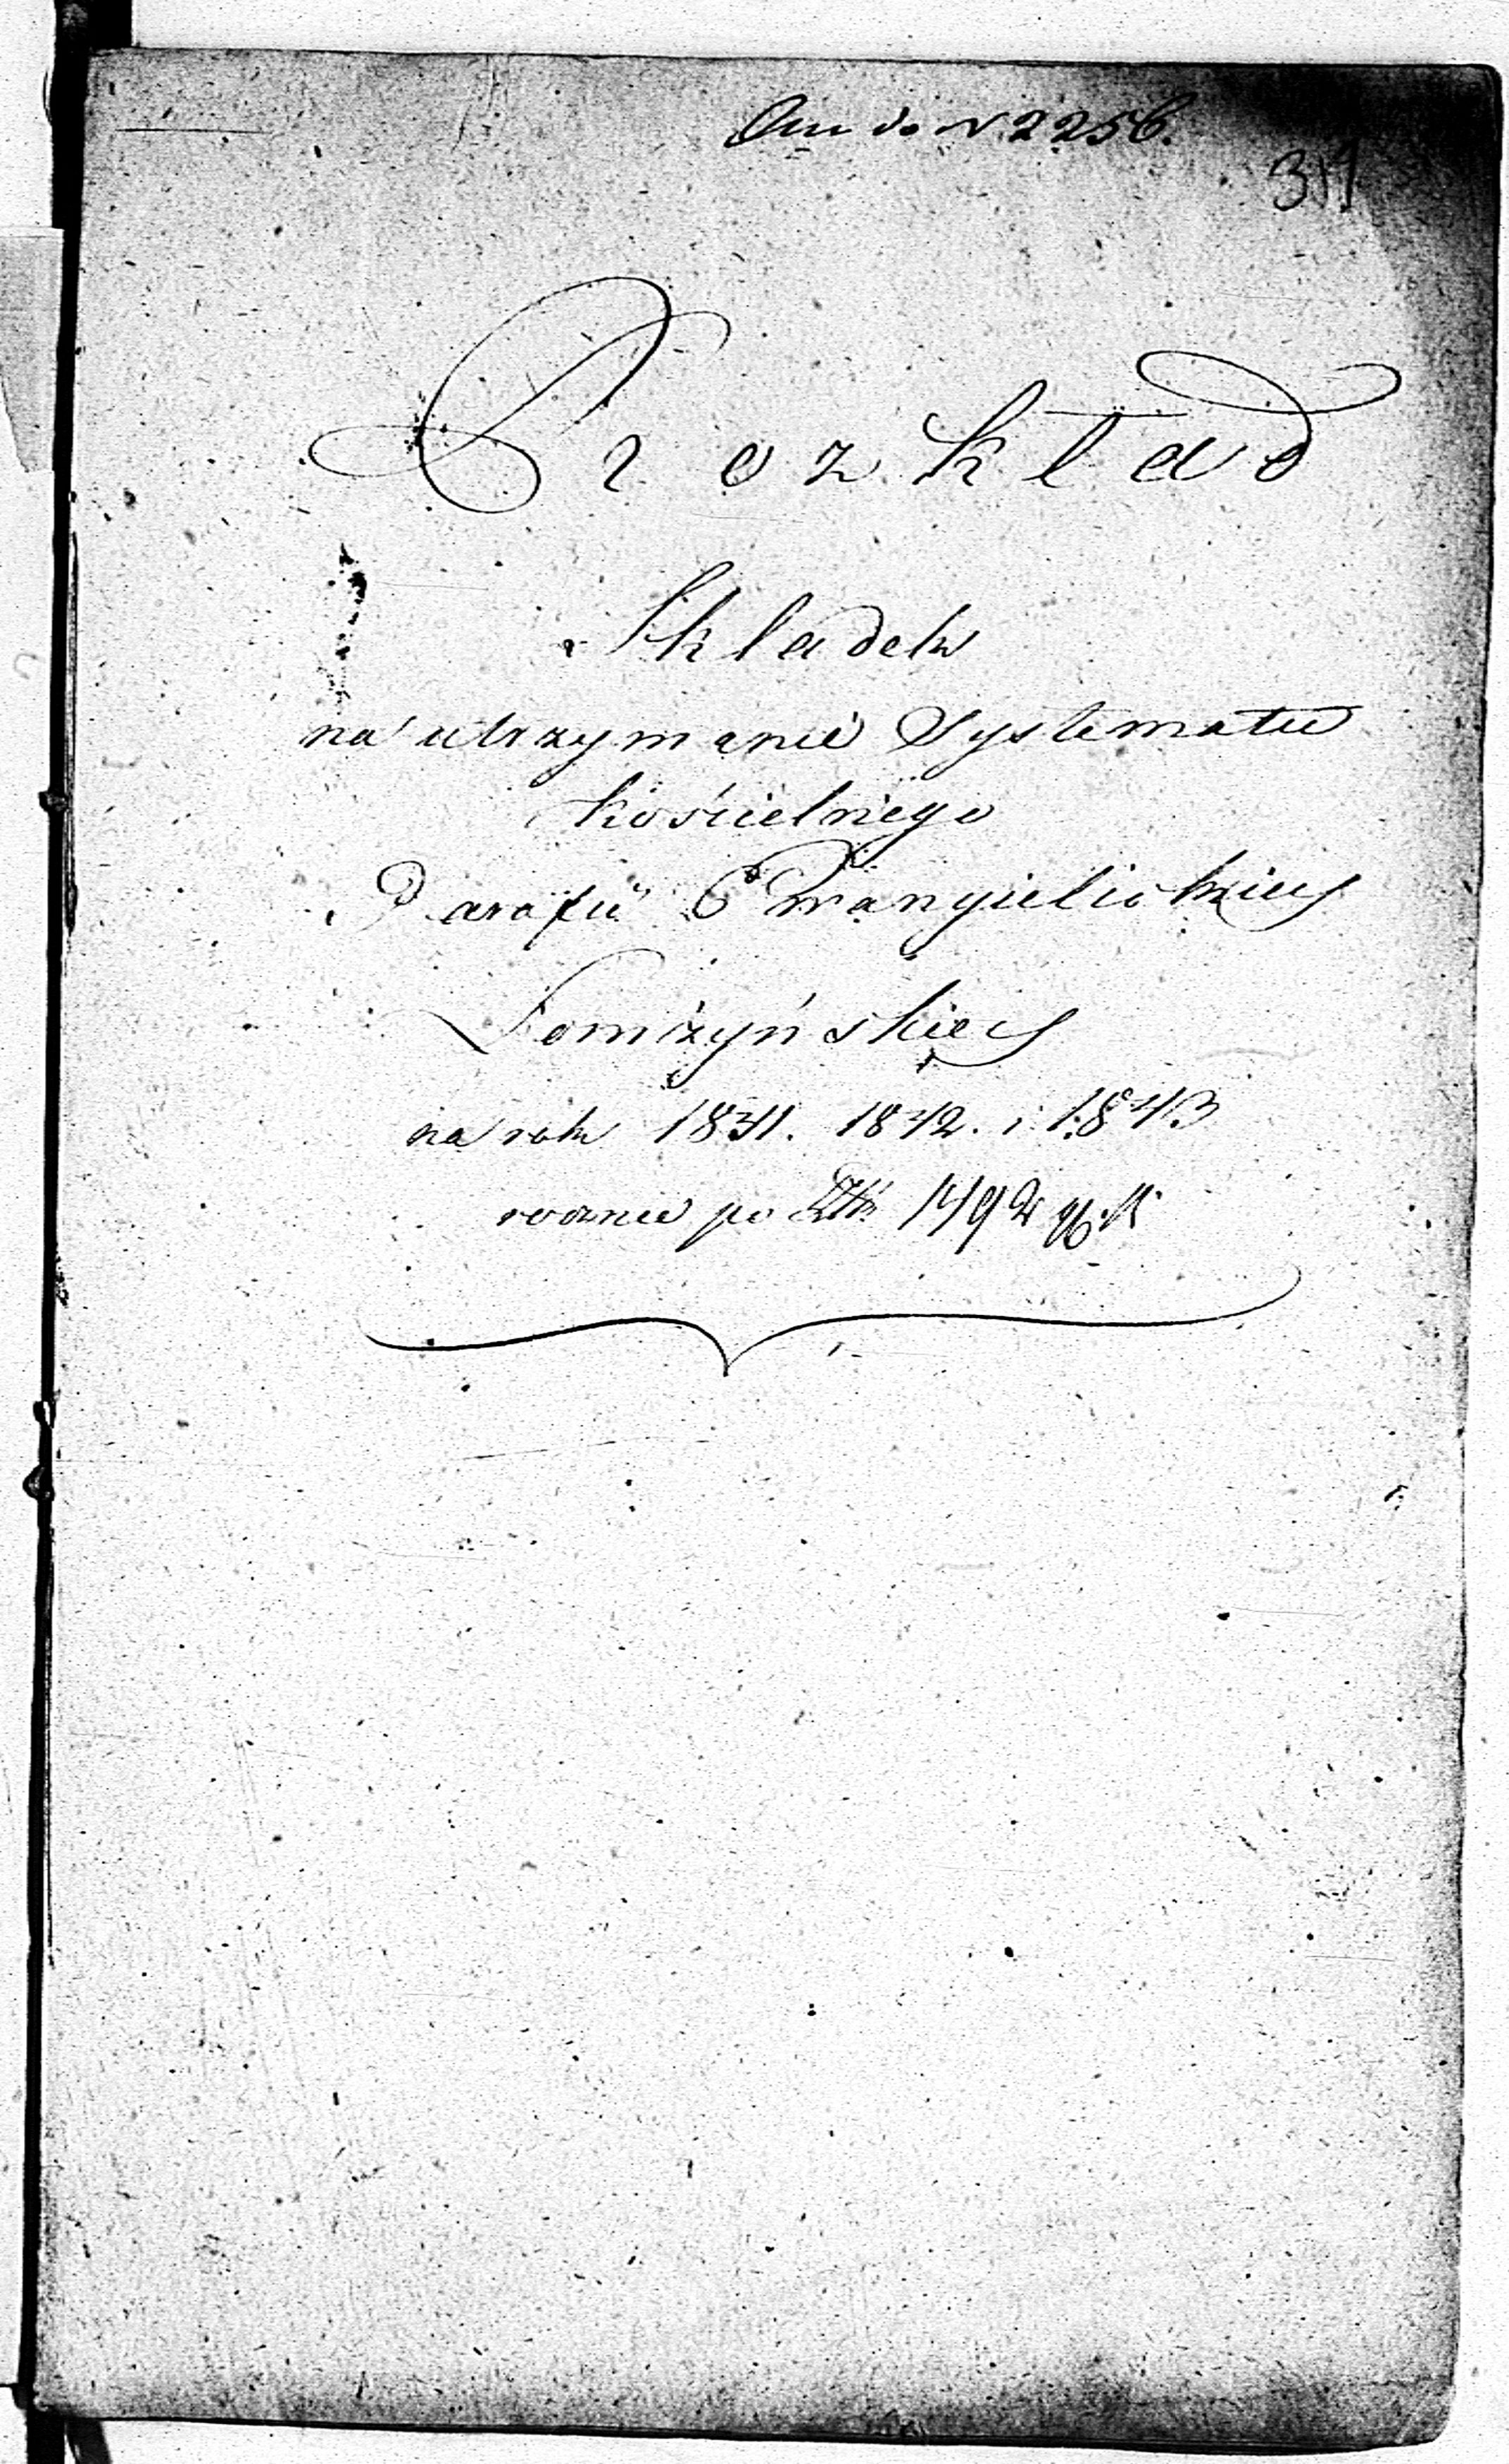 do N 2256.
Rozkład
Składek
na utrzymanie Systematu
kościelnego
Parafii Ewangielickiey
Łomżyńskiey
na rok 1841. 1842. i 1843
rocznie po 1492